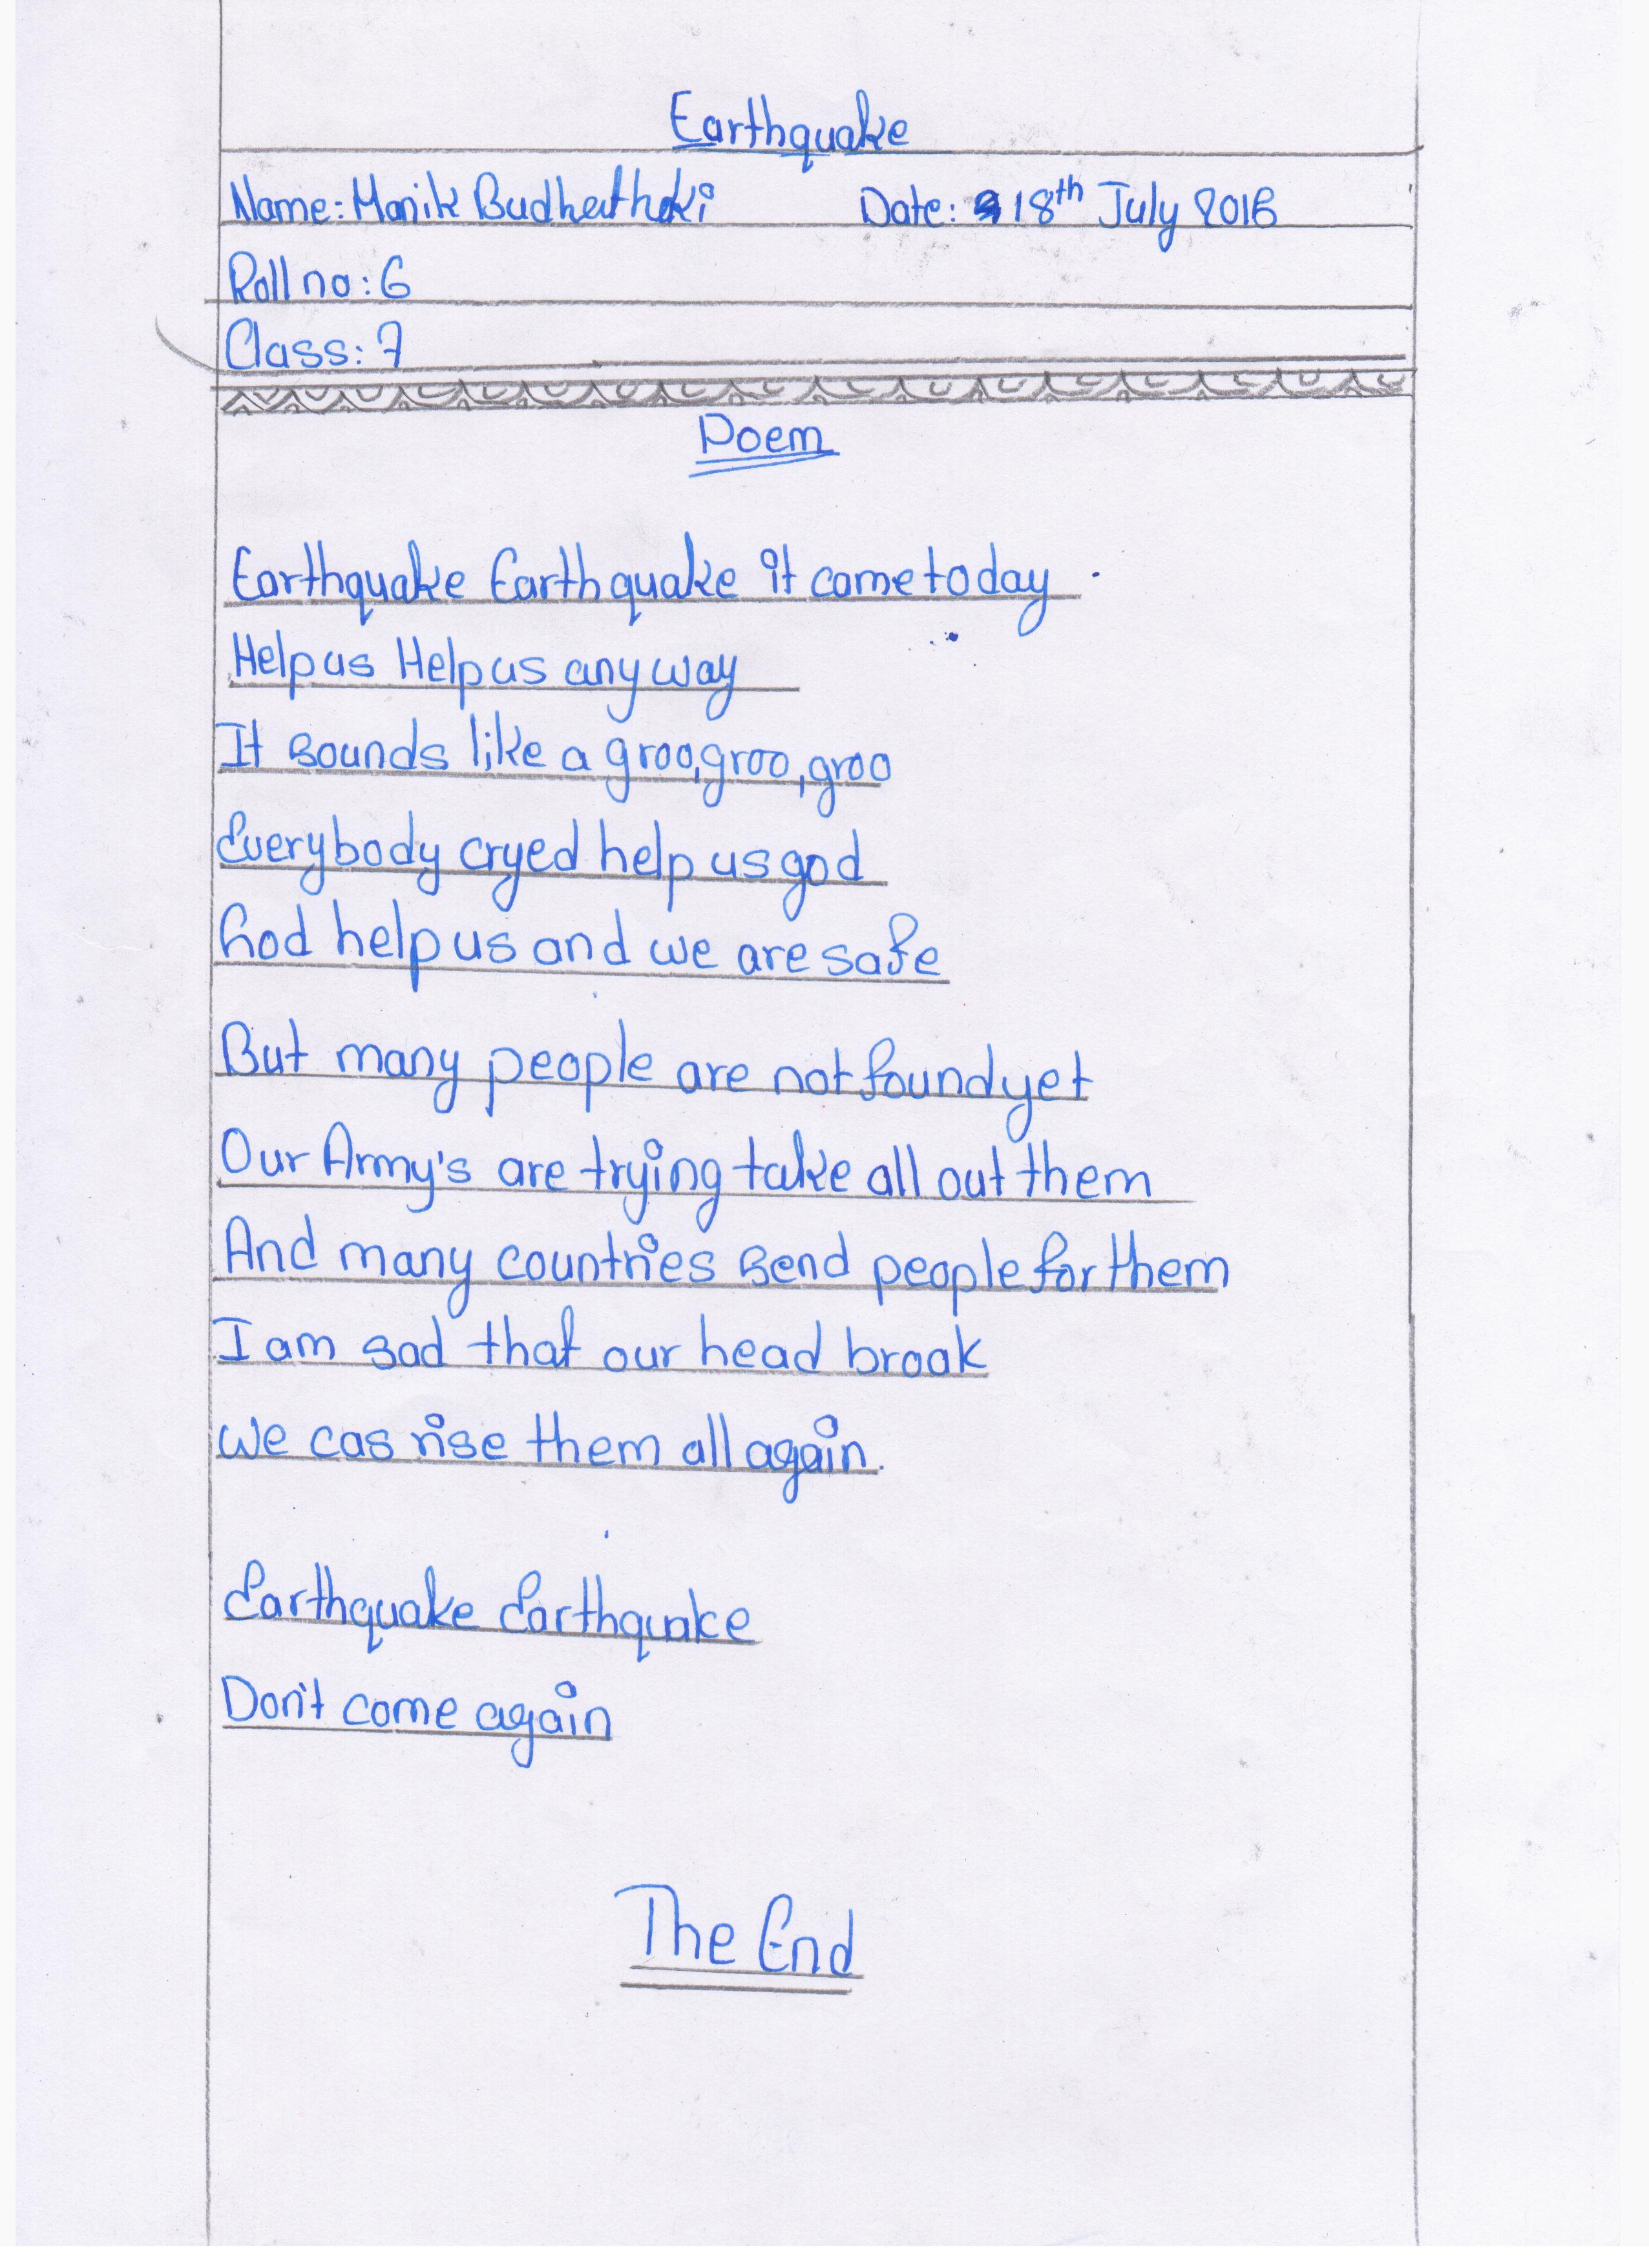 Earthquake
Name: Manik Budhathoki Date: 18th July 2016
Roll no: 6
Class: 7
Poem
Earthquake Earthquake it came today
Help us Help us any way
It sounds like a groo,groo,groo
Everybody cryed help us god
God help us and we are safe
But many people are not found yet
Our Army's are trying take all out them
And many countries send people for them
I am sad that our head broak
We cas rise them all again.
Earthquake Earthquake
Don't come again
The End